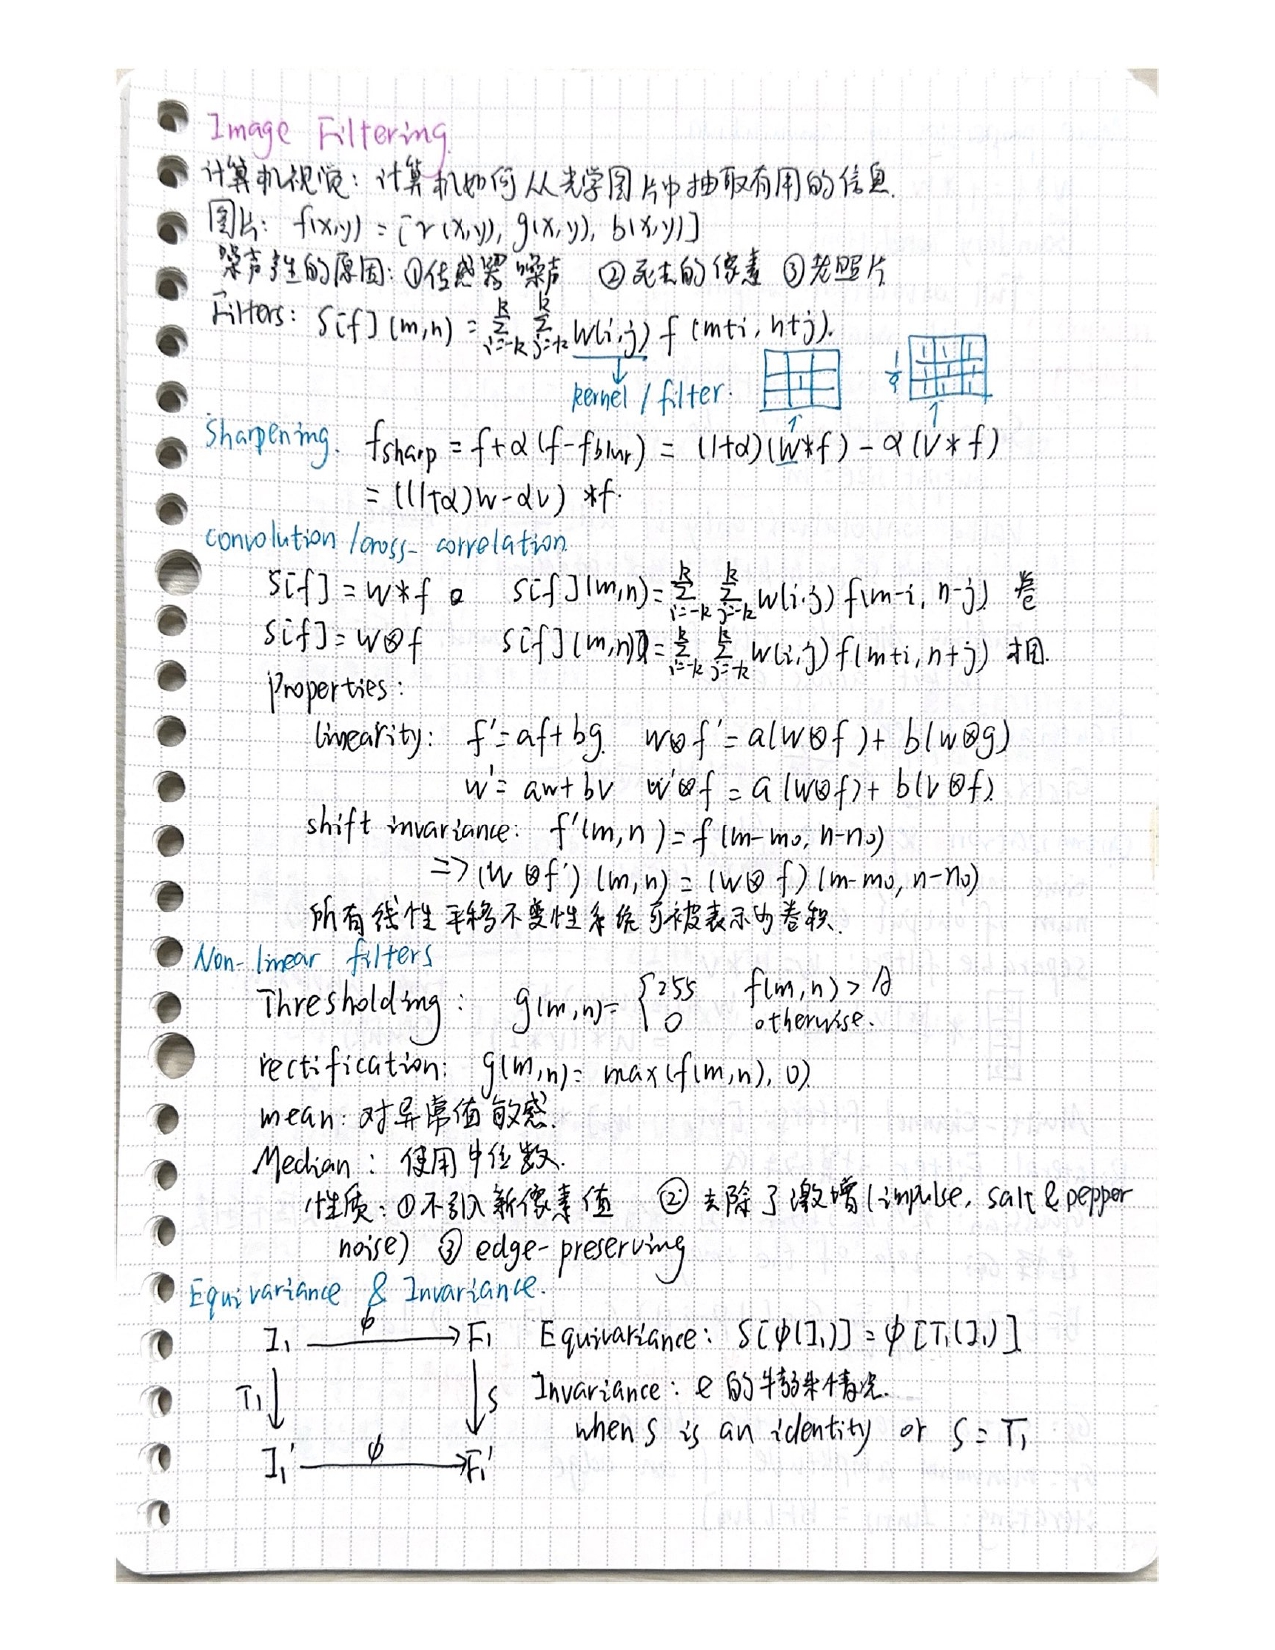 Image Filtering.
计算机视觉: 计算机如何从光学图片中抽取有用的信息.
图片: f(x,y) = [r(x,y), g(x,y), b(x,y)]
噪声产生的原因: ①传感器噪声 ②死去的像素 ③老照片
Filters: S[f](m,n) = Σ_{i=-k}^{k} Σ_{j=-k}^{k} w(i,j) f(m+i, n+j).
kernel / filter.
1
1/9
1 1 1
1 1 1
1 1 1
Sharpening. f_sharp = f+α(f-f_blur) = (1+α)(w*f) - α(v*f)
= ((1+α)w-αv) *f.
convolution /cross-correlation
S[f] = w*f S[f](m,n) = Σ_{i=-k}^{k} Σ_{j=-k}^{k} w(i,j) f(m-i, n-j) 卷
S[f] = w⊗f S[f](m,n) = Σ_{i=-k}^{k} Σ_{j=-k}^{k} w(i,j) f(m+i, n+j) 相.
Properties:
linearity: f' = af+bg. w⊗f' = a(w⊗f) + b(w⊗g)
w' = aw+bv w'⊗f = a(w⊗f) + b(v⊗f).
shift invariance: f'(m,n) = f(m-m₀, n-n₀)
=> (w⊗f')(m,n) = (w⊗f)(m-m₀, n-n₀)
所有线性平移不变性系统可被表示为卷积.
Non-linear filters
Thresholding: g(m,n) = { 255 f(m,n) > A
0 otherwise.
rectification: g(m,n) = max(f(m,n), 0)
mean: 对异常值敏感.
Median: 使用中位数.
性质: ①不引入新像素值 ②去除了激增(impulse, salt & pepper
noise) ③ edge-preserving
Equivariance & Invariance.
I₁ ϕ F₁ Equivariance: S[ϕ(I₁)] = ϕ[T₁(I₁)]
T₁ S Invariance: e的特殊情况.
when S is an identity or S = T₁
I₁' ϕ F₁'